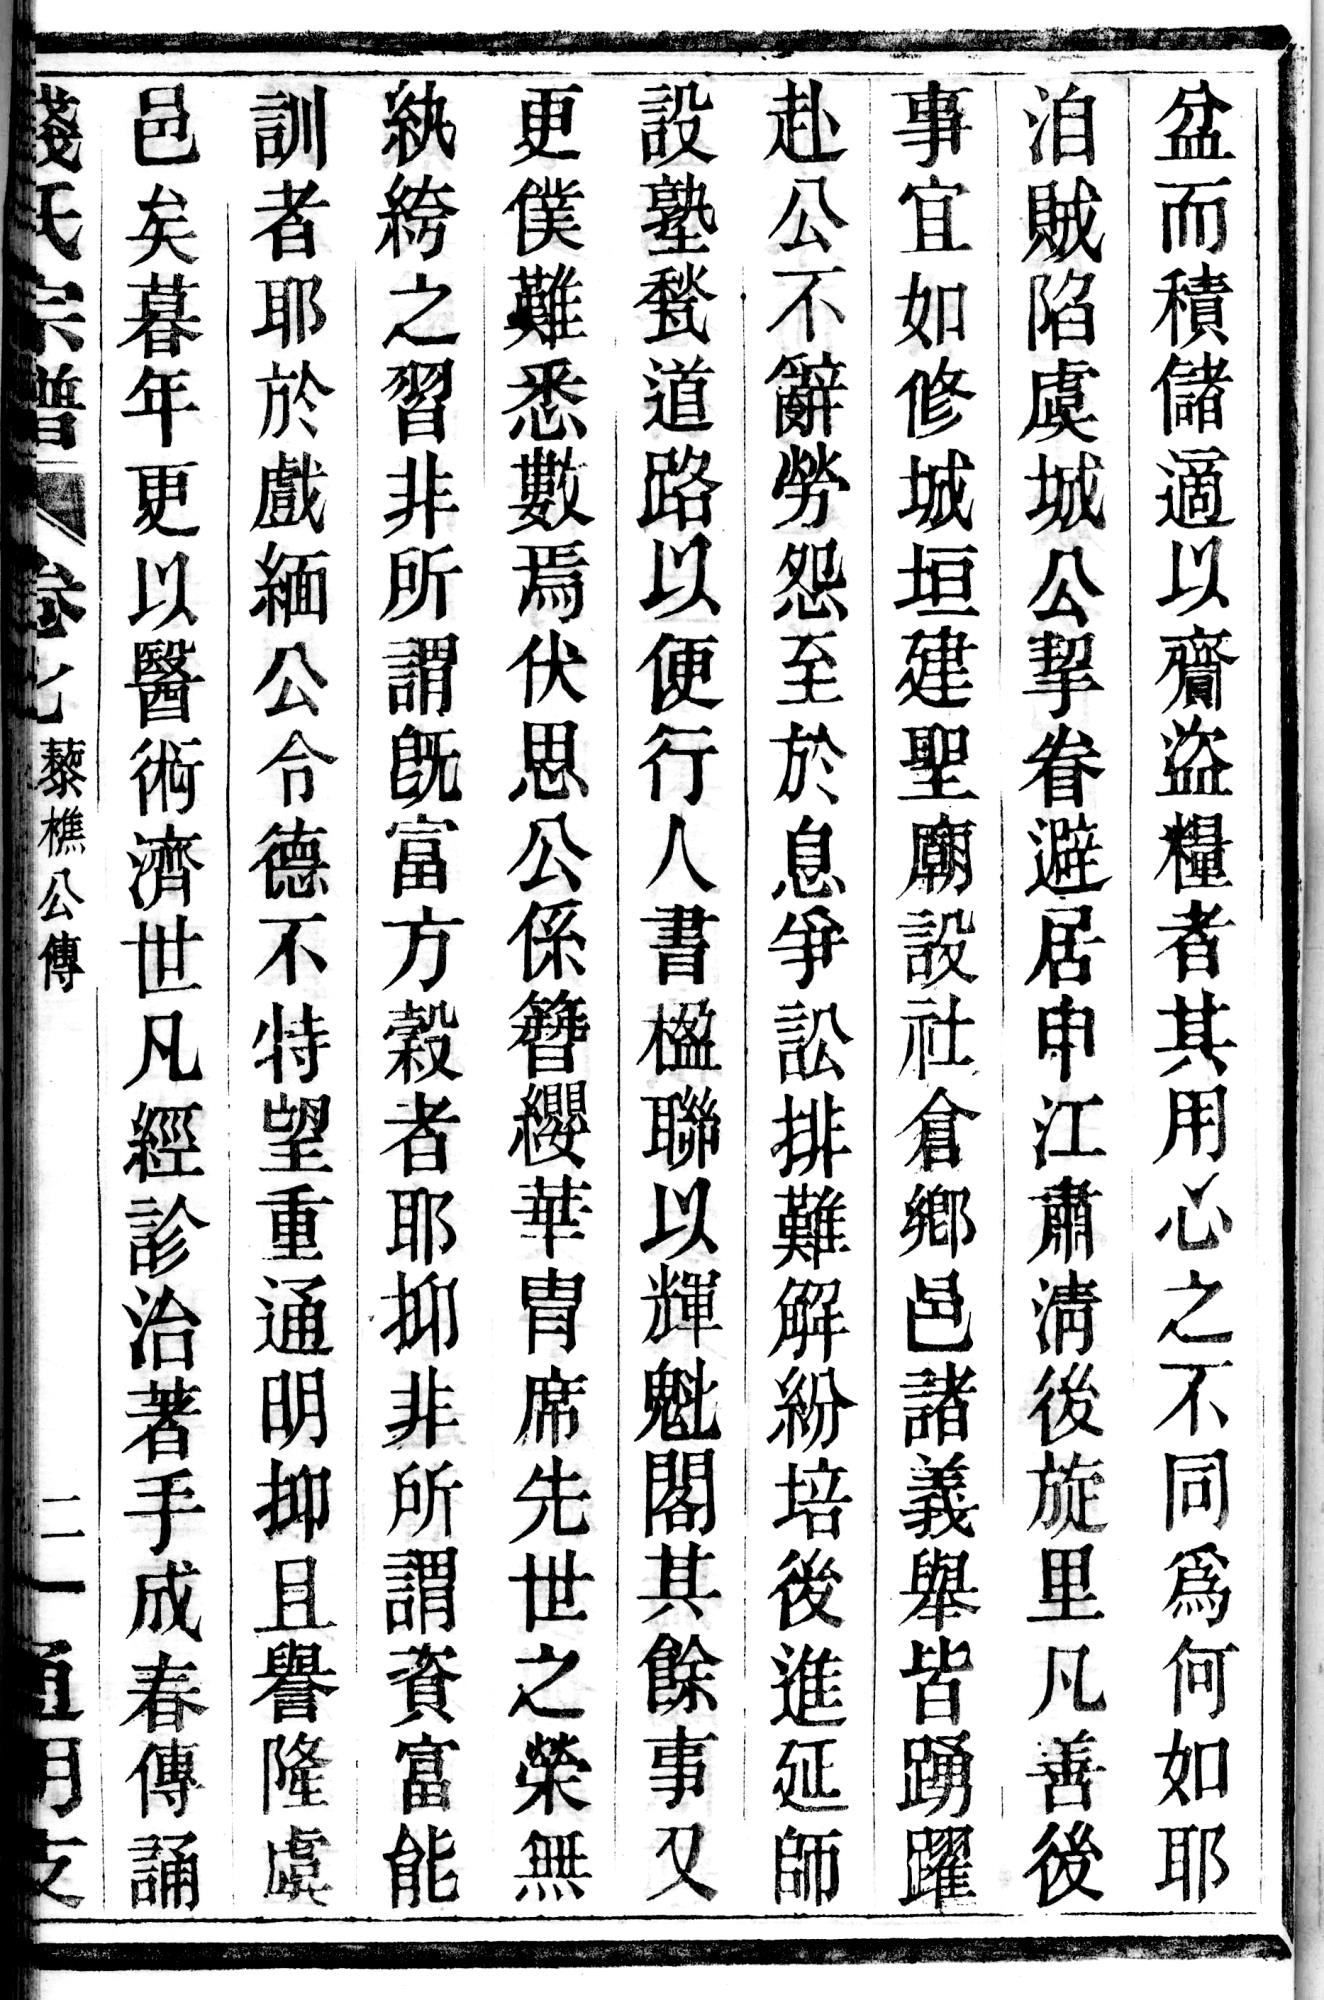 盆而積儲適以齎盜糧者其用心之不同爲何如耶
洎賊陷虞城公挈眷避居申江肅淸後旋里凡善後
事宜如修城垣建聖廟設社倉鄉邑諸義舉皆踴躍
赴公不辭勞怨至於息爭訟排難解紛培後進延師
設塾甃道路以便行人書楹聯以輝魁閣其餘事又
更僕難悉數焉伏思公係簪纓華冑席先世之榮無
紈絝之習非所謂旣富方穀者耶抑非所謂資富能
訓者耶於戲緬公令德不特望重通明抑且譽隆虞
邑矣暮年更以醫術濟世凡經診治著手成春傳誦
錢氏宗譜 卷七 藜樵公傳 二 通明支